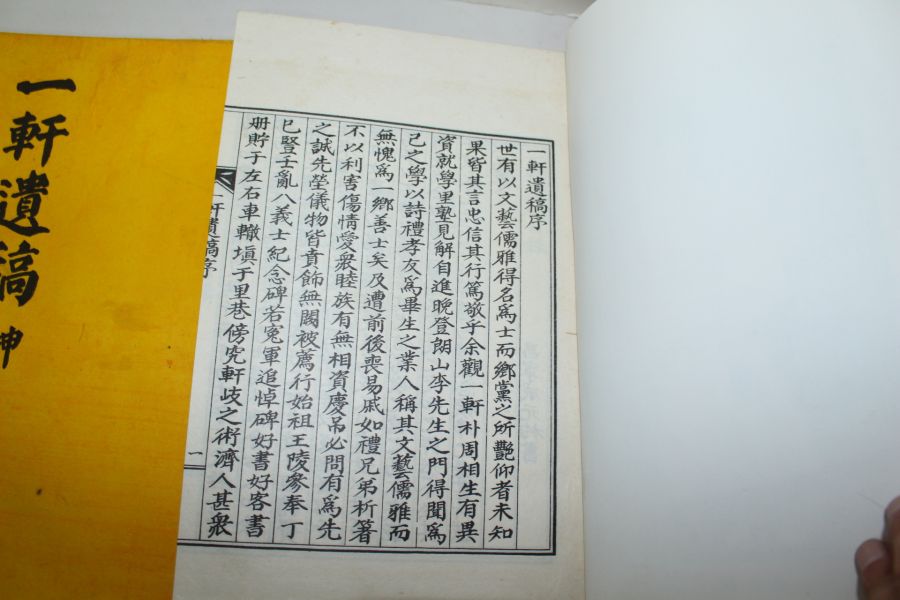 一軒遺稿序
世有以文藝儒雅得名爲士而鄉黨之所艷仰者未知
果皆其言忠信其行篤敬乎余觀一軒朴周相生有異
資就學里塾見解自進晚登朗山李先生之門得聞爲
己之學以詩禮孝友爲畢生之業人稱其文藝儒雅而
無愧爲一鄉善士矣及遭前後喪易戚如禮兄弟析箸
不以利害傷情愛衆睦族有無相資慶吊必問有爲先
之誠先塋儀物皆賁飾無闕被薦行始祖王陵參奉丁
巳豎壬亂八義士紀念碑若冤軍追悼碑好書好客書
册貯于左右車轍塡于里巷傍究軒歧之術濟人甚衆
一軒遺稿序
一
一軒遺稿 坤